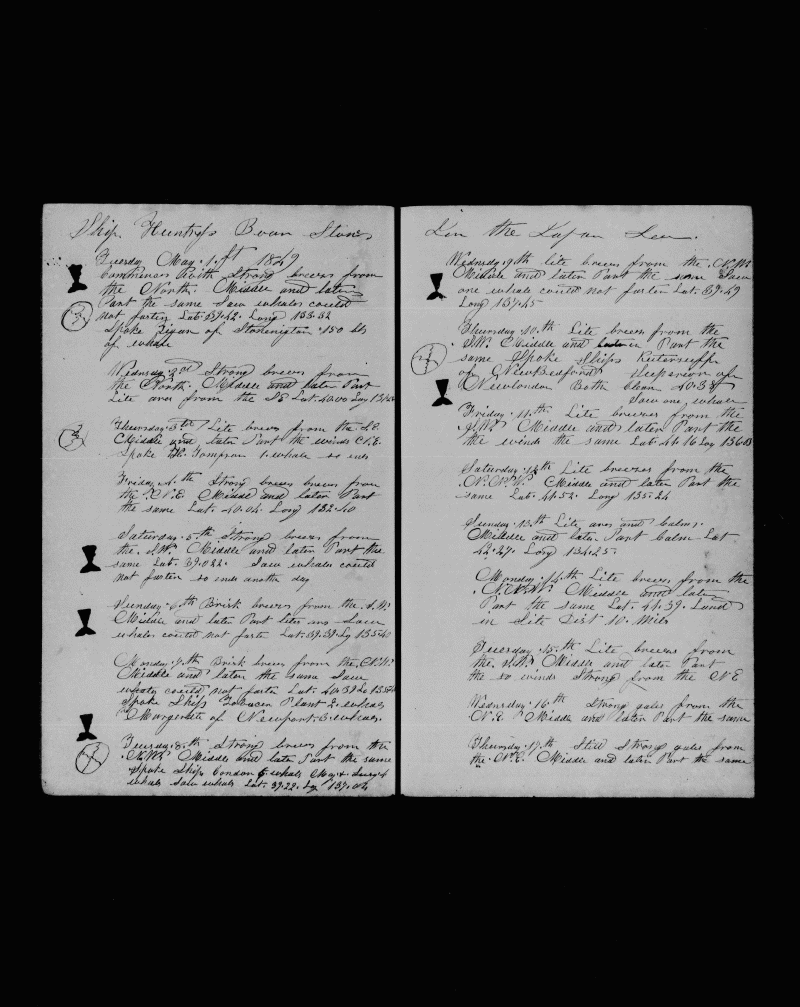 Ship Huntress Boun Stones
Tuesday May 1.st 1849
Comminces Both Strong brezes from
the North. Middle and later
Part the same Saw whales could
not farten Lat. 39.42. Long 153.32
Spoke of Stonington 150 bls
of whale
Wednesday 2nd Strong brezes from
the North. Middle and later Part
Lite ares from the SE Lat. 40.00 Log
Thursday 3th Lite brezes from the S.E.
Middle and later Part the winds N.E.
Spoke the 1. whale so ends
Friday 4.th Strong brezes from
the N.E Middle and later Part
the same Lat. 40.04. Long 152.40
Saturday 5.th Strong brezes from
the S.W. Middle and later Part the
same Lat. 39.022. Saw whales could
not farten so ends another day
Sunday 6.th Brisk brezes from the S.W.
Middle and later Part lite ares Saw
whales could not farte Lat. 39.39. Lg 135.40
Monday 7.th Brisk brezes from the N.W.
Middle and later the same Saw
whales could not farte Lat. 40.31
Spoke Ships Tobacco Plant 2. whales
Margerett of Newport. 3. whales.
Tuesday 8.th Strong brezes from the
N.W. Middle and later Part the same
Spoke Ship London 5 whales May &
whale Saw whales Lat. 39.22. Lg 137.04
In the Japan Sea.
Wednesday 9th lite brezes from the N.W.
Middle and later Part the same Saw
one whale could not farten Lat. 39.49
Long 137.45
Thursday 10.th Lite brezes from the
S.W. Middle and later Part the
same Spoke Ships
of New Bedford Hesperion of
Newlondon Both Clean 40.38
Saw one whale
Friday 11.th Lite brezes from the
S.W. Middle and later Part the
the winds the same Lat. 41.16 Log 136.03
Saturday 12th Lite brezes from the
N.N.W. Middle and later Part the
same Lat. 41.52. Long 135.24
Sunday 13.th Lite ares and Calms.
Middle and later Part Calm Lat
42.27. Long 134.25
Monday 14.th Lite brezes from the
N.N.W. Middle and later
Part the same Lat. 41.39. Land
in Site Dist 10. Miles
Tuesday 15.th Lite brezes from
the S.W. Middle and later Part
the so winds Strong from the N.E
Wednesday 16.th Strong gales from the
N.E. Middle and later Part the same
Thursday 17.th Still Strong gales from
the N.E. Middle and later Part the same